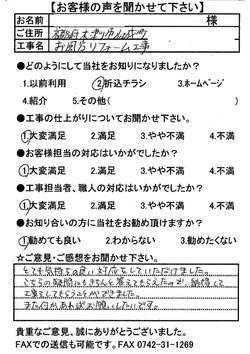 【お客様の声を聞かせて下さい】
お名前 様
ご住所
工事名 お風呂リフォーム工事
●どのようにして当社をお知りになりましたか?
1.以前利用 ②折込チラシ 3.ホームページ
4.紹介 5.その他( )
●工事の仕上がりについてお聞かせ下さい。
①大変満足 2.満足 3.やや不満 4.不満
●お客様担当の対応はいかがでしたか?
①大変満足 2.満足 3.やや不満 4.不満
●工事担当者、職人の対応はいかがでしたか?
①大変満足 2.満足 3.やや不満 4.不満
●お知り合いの方に当社をお勧め頂けますか?
①勧めても良い 2.わからない 3.勧めたくない
☆ご意見・ご感想をお聞かせ下さい。
とても気持ちの良い対応をしていただけました。
こちらの疑問にもきちんと答えてもらえたので、納得して
工事をしてもらうことができました。
また何かあればお願いしたいです。
貴重なご意見、誠にありがとうございました。
FAXでの送信も可能です。FAX 0742-31-1269